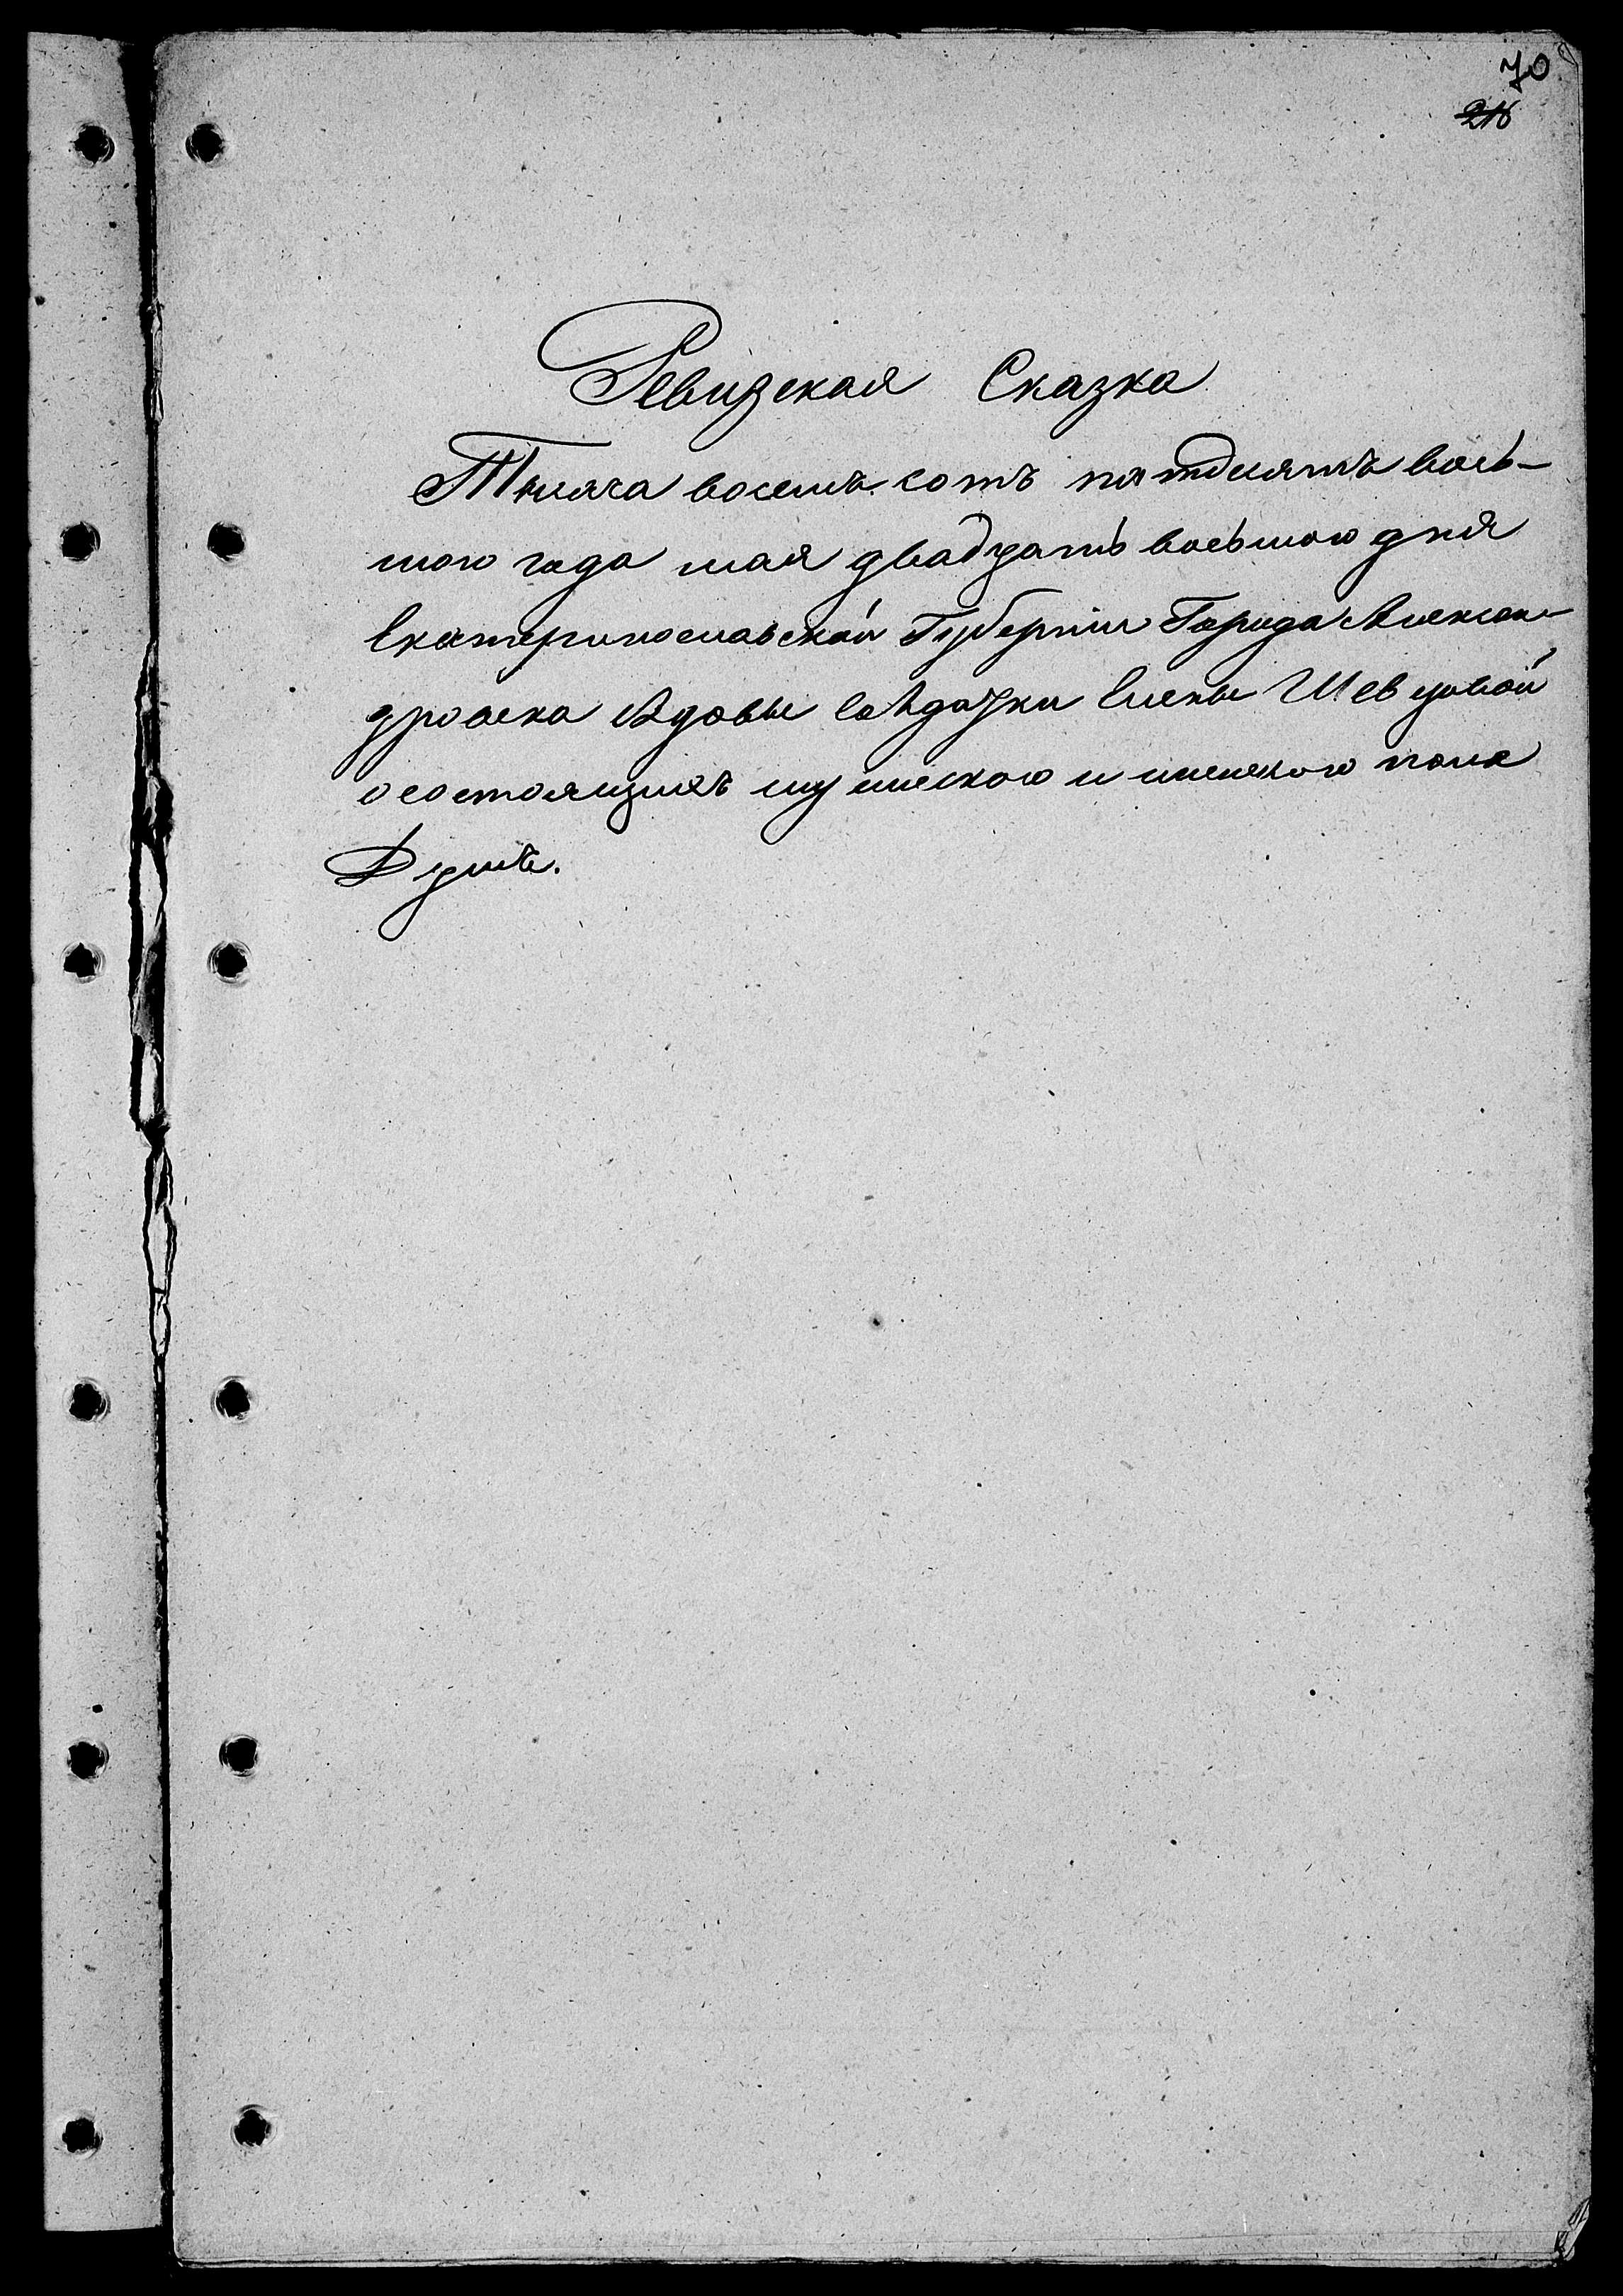 70
218
Ревизская Сказка
Тысяча восемъ сотъ пятдесятъ вось-
мого года мая двадцать восьмого дня
Екатеринославской Губерніи Города Алексан-
дровска Вдовы солдатки Елены Шевцовой
о состоящихъ мужескаго и женскаго пола
Душъ.